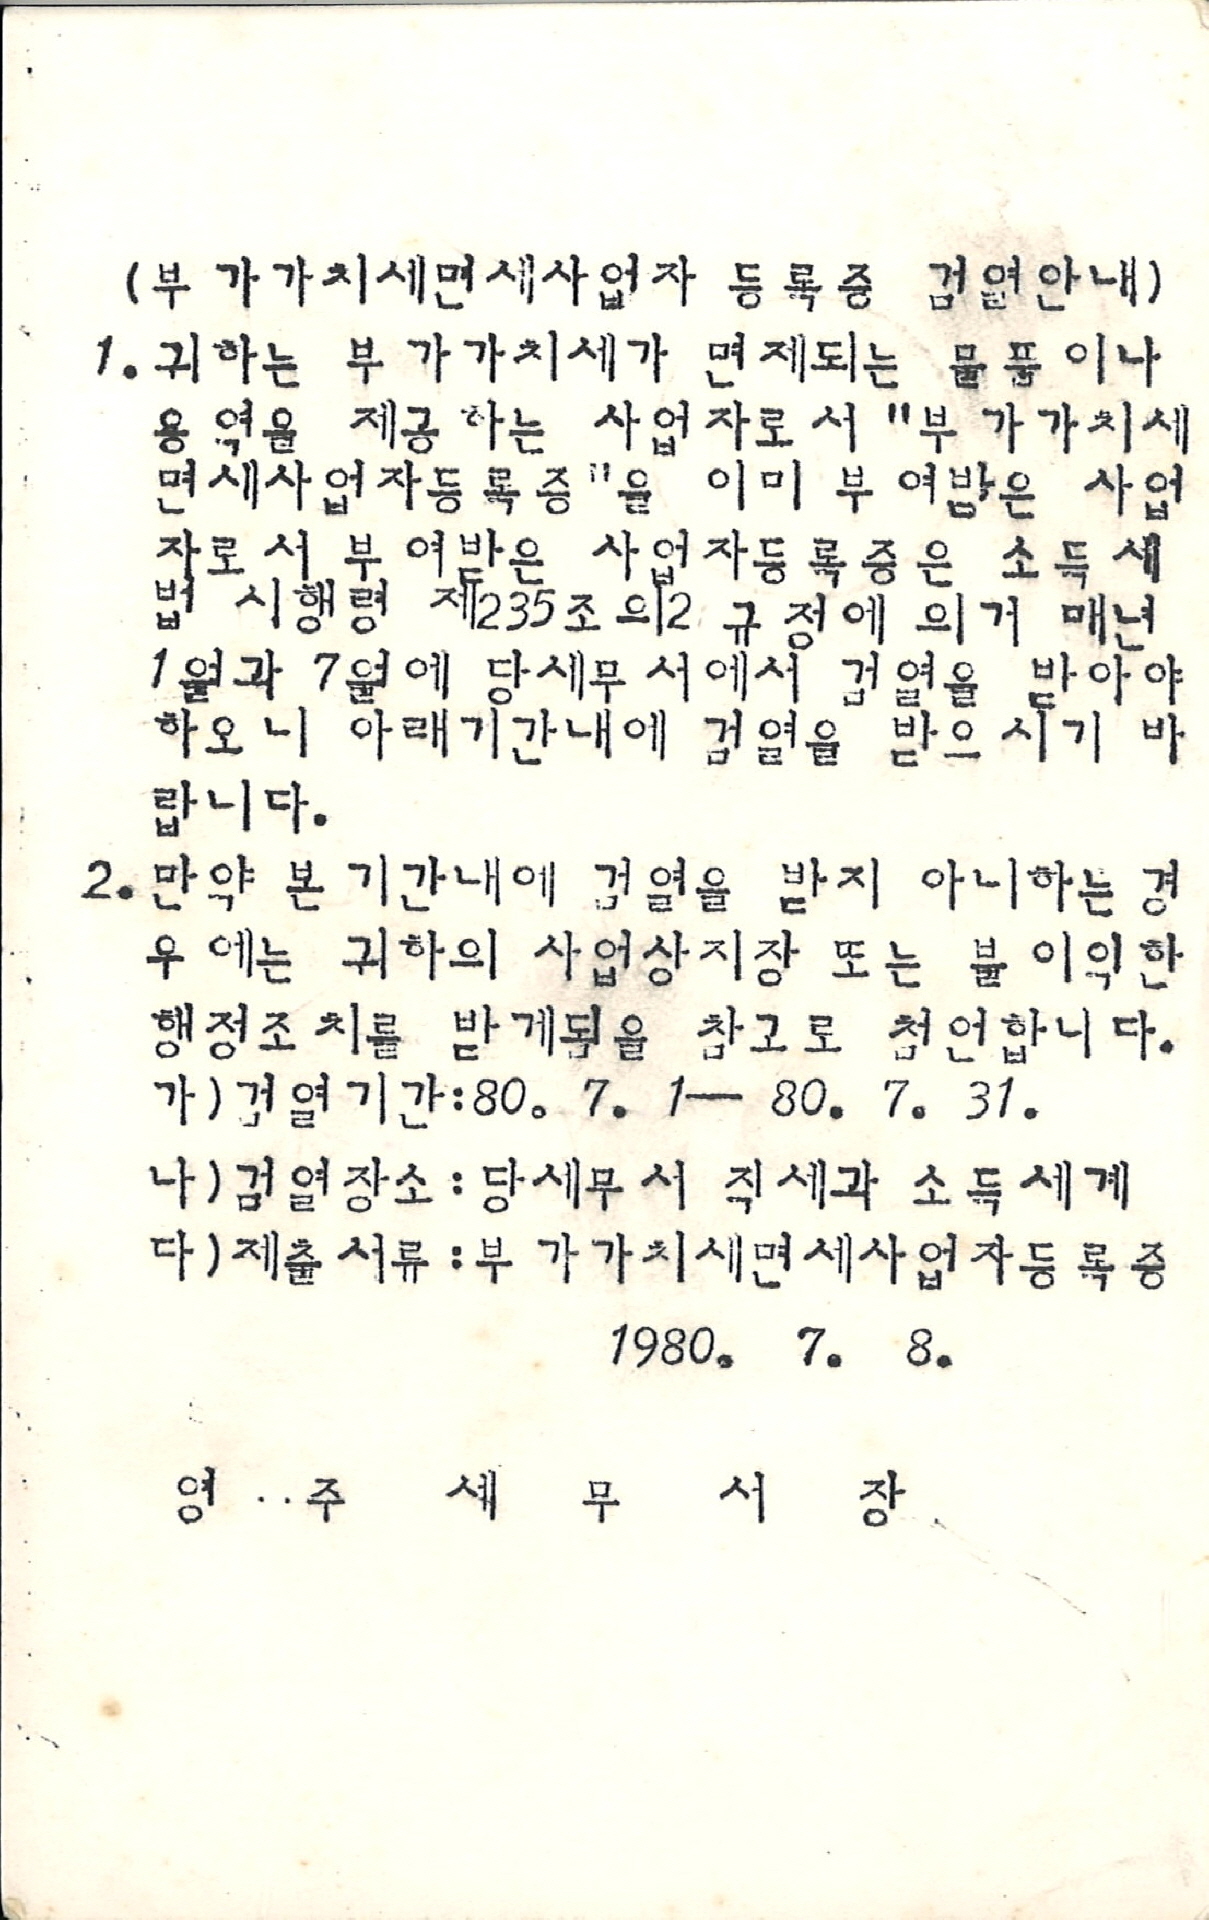 (부가가치세면세사업자 등록증 검열안내)
1. 귀하는 부가가치세가 면제되는 물품이나
용역을 제공하는 사업자로서 "부가가치세
면세사업자등록증"을 이미 부여받은 사업
자로서 부여받은 사업자등록증은 소득세
법 시행령 제235조의2 규정에 의거 매년
1월과 7월에 당세무서에서 검열을 받아야
하오니 아래기간내에 검열을 받으시기 바
랍니다.
2. 만약 본 기간내에 검열을 받지 아니하는 경
우에는 귀하의 사업상지장 또는 불이익한
행정조치를 받게됨을 참고로 첨언합니다.
가)검열기간:80. 7. 1— 80. 7. 31.
나)검열장소:당세무서 직세과 소득세계
다)제출서류:부가가치세면세사업자등록증
1980. 7. 8.
영주세무서장